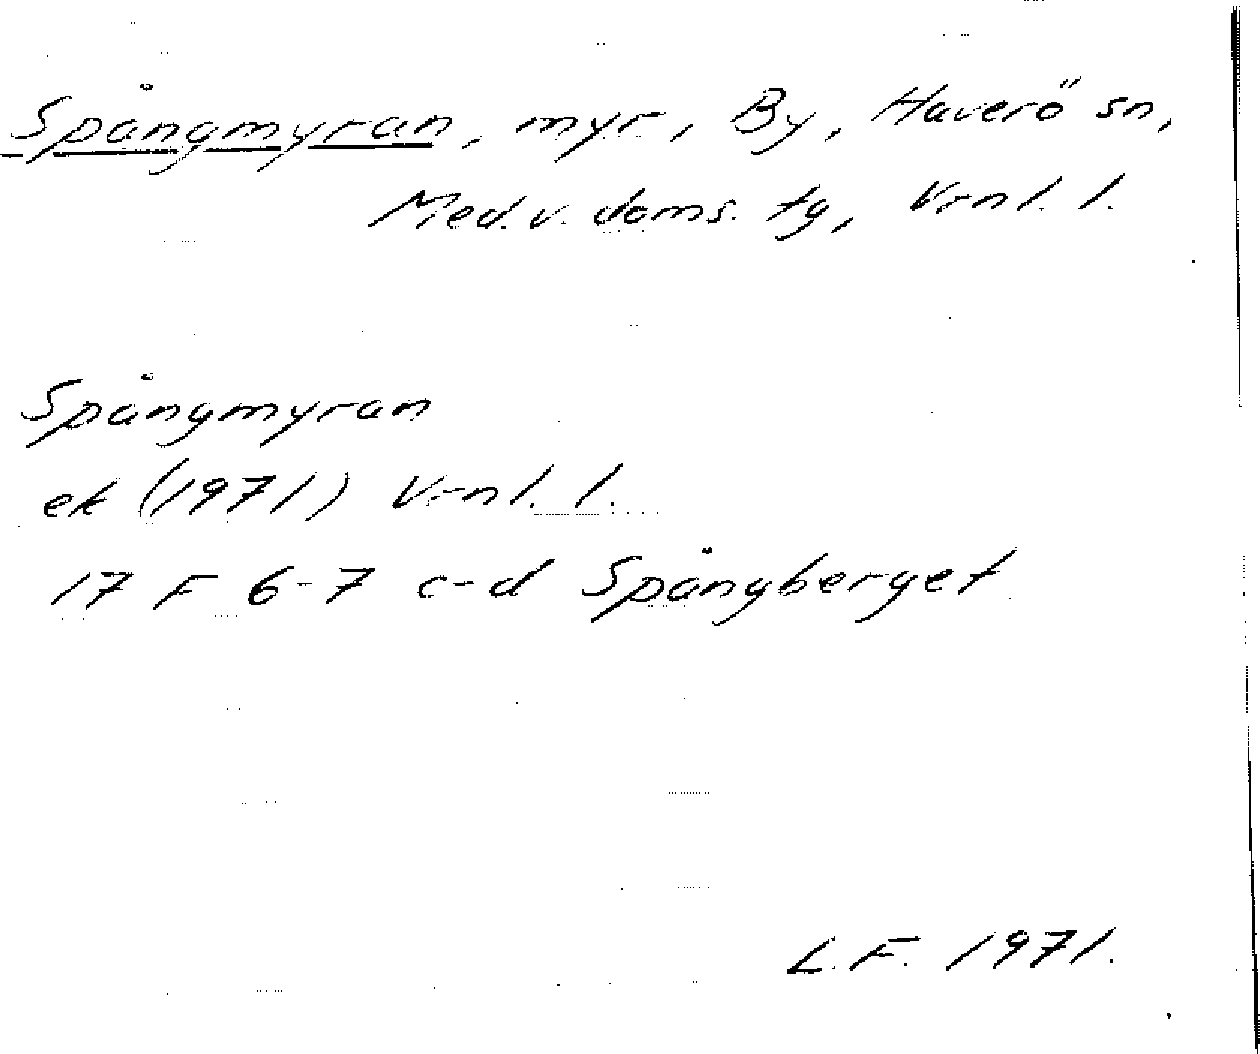 Spångmyran, myr, By, Haverö sn,
Med. v. doms. tg, Vrnl. l.
Spångmyran
ek (1971) Vrnl. l.
17 F 6-7 c-d Spångberget
L.F. 1971.